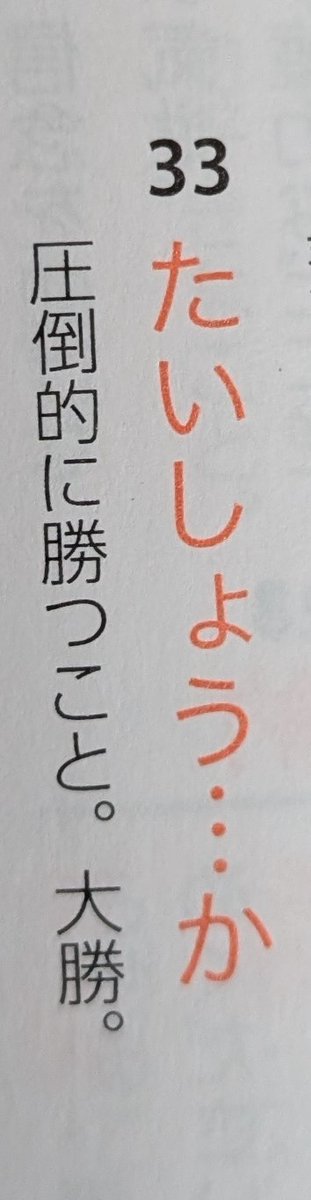 33 たいしょう…か
圧倒的に勝つこと。大勝。